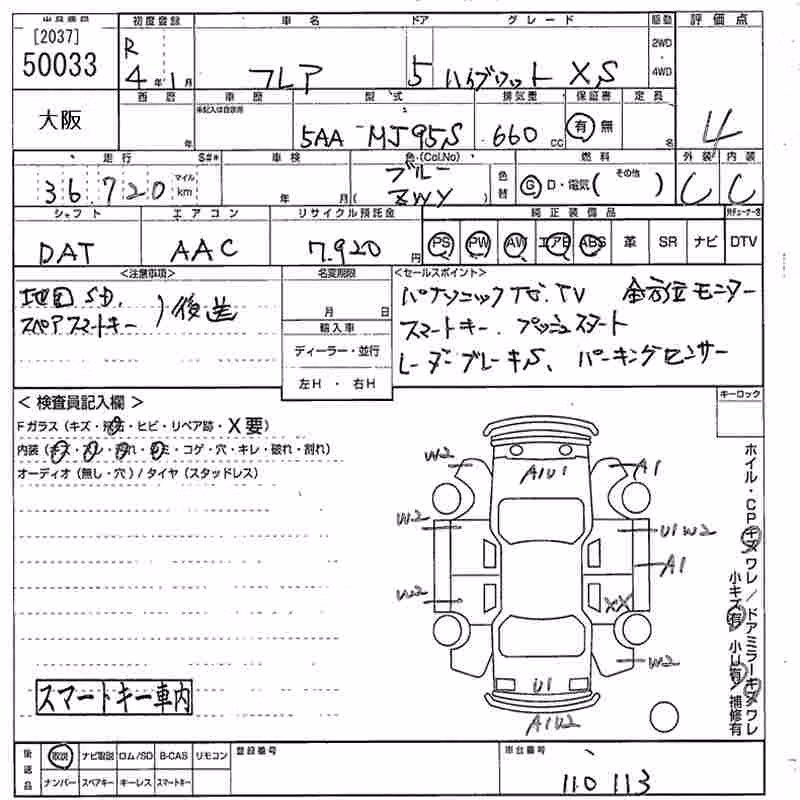 出品番号 初度登録 車名 ドア グレード 駆動 評価点
[2037] 50033 R 4年1月 フレア 5 ハイブリット XS 2WD ・ 4WD 4
大阪 西暦 車歴 型式 排気量 保証書 定員
年 記入は自家用 5AA-MJ95S 660cc 有 無 名
走行 S#* 車検 色(Col.No) 燃料 外装 内装
36,720 マイル km 年 月 ブルー ( ZWY ) 色替 G・D・電気( その他 ) C C
シャフト エアコン リサイクル預託金 純正装備品
DAT AAC 7,920円 PS PW AW エアB ABS 革 SR ナビ DTV
<注意事項> 名変期限 <セールスポイント>
地図SD. スペアスマートキー ) 後送
月 日
輸入車
ディーラー・並行
左H ・ 右H
パナソニックナビ.TV 全方位モニター
スマートキー. プッシュスタート
レーダーブレーキS. パーキングセンサー
キーロック
< 検査員記入欄 >
Fガラス(キズ・飛石・ヒビ・リペア跡・X要)
内装(キズ・スレ・汚れ・シミ・コゲ・穴・キレ・破れ・割れ)
オーディオ(無し・穴)/タイヤ(スタッドレス)
W2 A1U1 A1
W2 U1W2
A1
W2 XX
W2
U1
A1U2
ホイル・CPキズワレ/ドアミラーキズワレ
小キズ有 小U有/補修有
スマートキー車内
後送品 取説 ナビ取説 ロム/SD B-CAS リモコン 登録番号 車台番号
ナンバー スペアキー キーレス スマートキー 110113